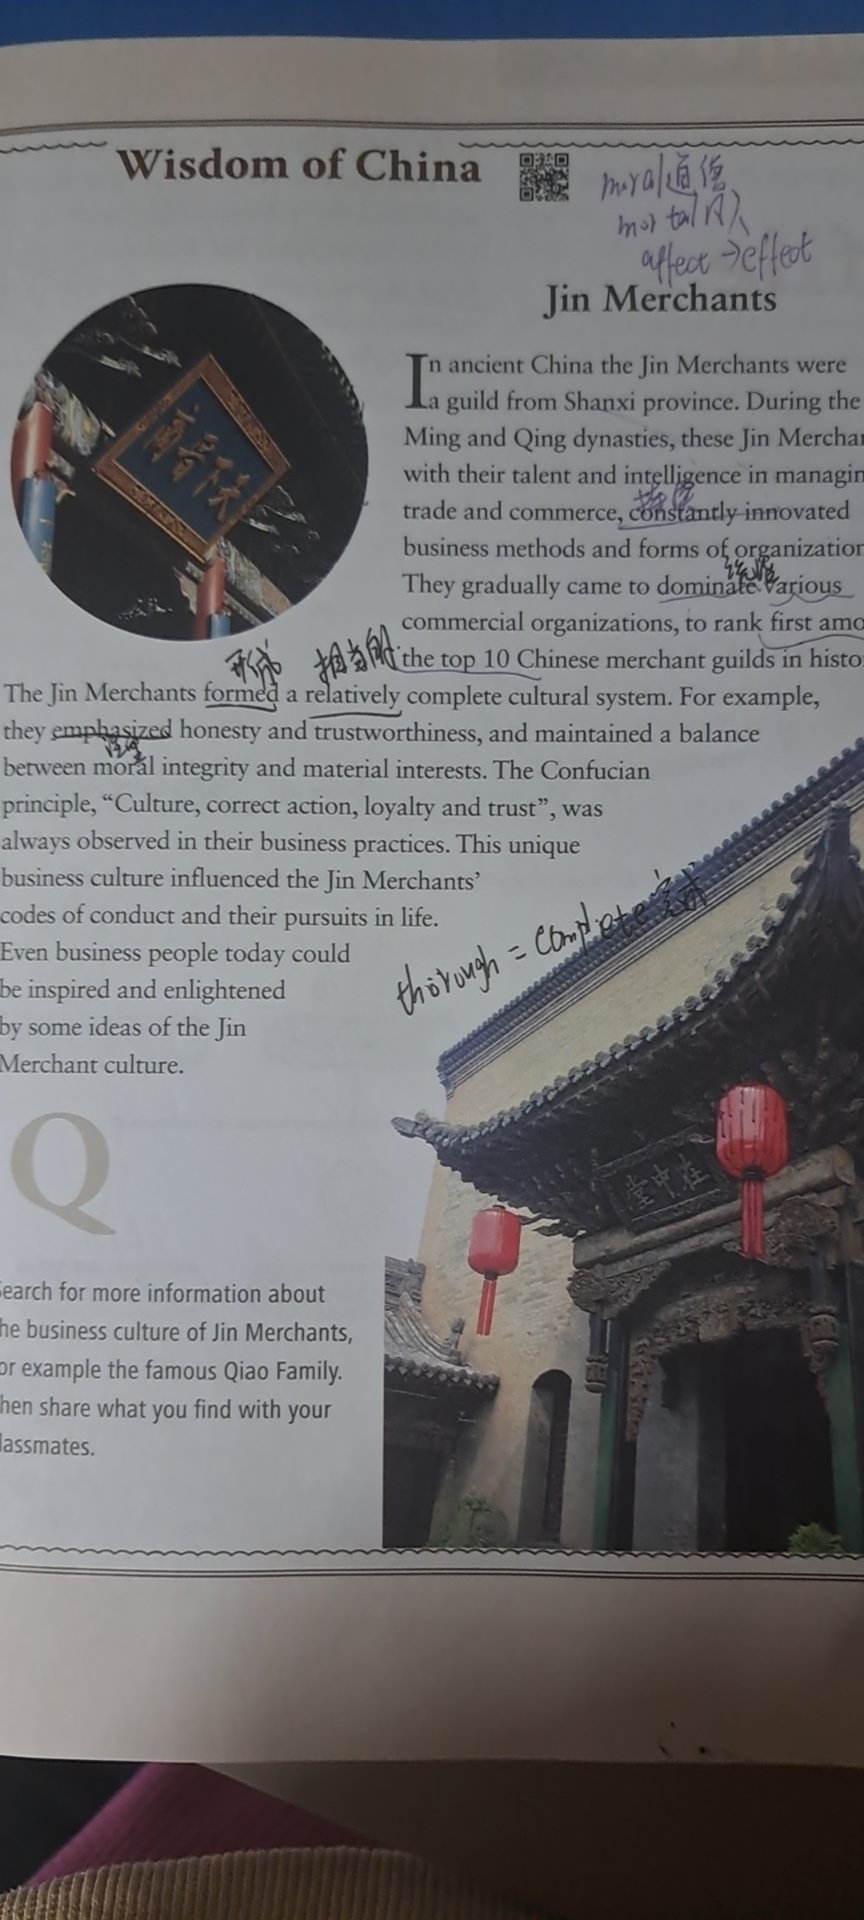 Wisdom of China
moral 道德
mortal 凡人
affect → effect
天下晋商
Jin Merchants
In ancient China the Jin Merchants were
a guild from Shanxi province. During the
Ming and Qing dynasties, these Jin Mercha
with their talent and intelligence in managin
trade and commerce, constantly innovated
business methods and forms of organization
They gradually came to dominate various
统治
commercial organizations, to rank first amo
the top 10 Chinese merchant guilds in histo
形成 相当的
The Jin Merchants formed a relatively complete cultural system. For example,
they emphasized honesty and trustworthiness, and maintained a balance
between moral integrity and material interests. The Confucian
principle, “Culture, correct action, loyalty and trust”, was
always observed in their business practices. This unique
business culture influenced the Jin Merchants’
codes of conduct and their pursuits in life.
Even business people today could
be inspired and enlightened
by some ideas of the Jin
Merchant culture.
thorough = complete
Q
earch for more information about
he business culture of Jin Merchants,
or example the famous Qiao Family.
hen share what you find with your
lassmates.
在中堂